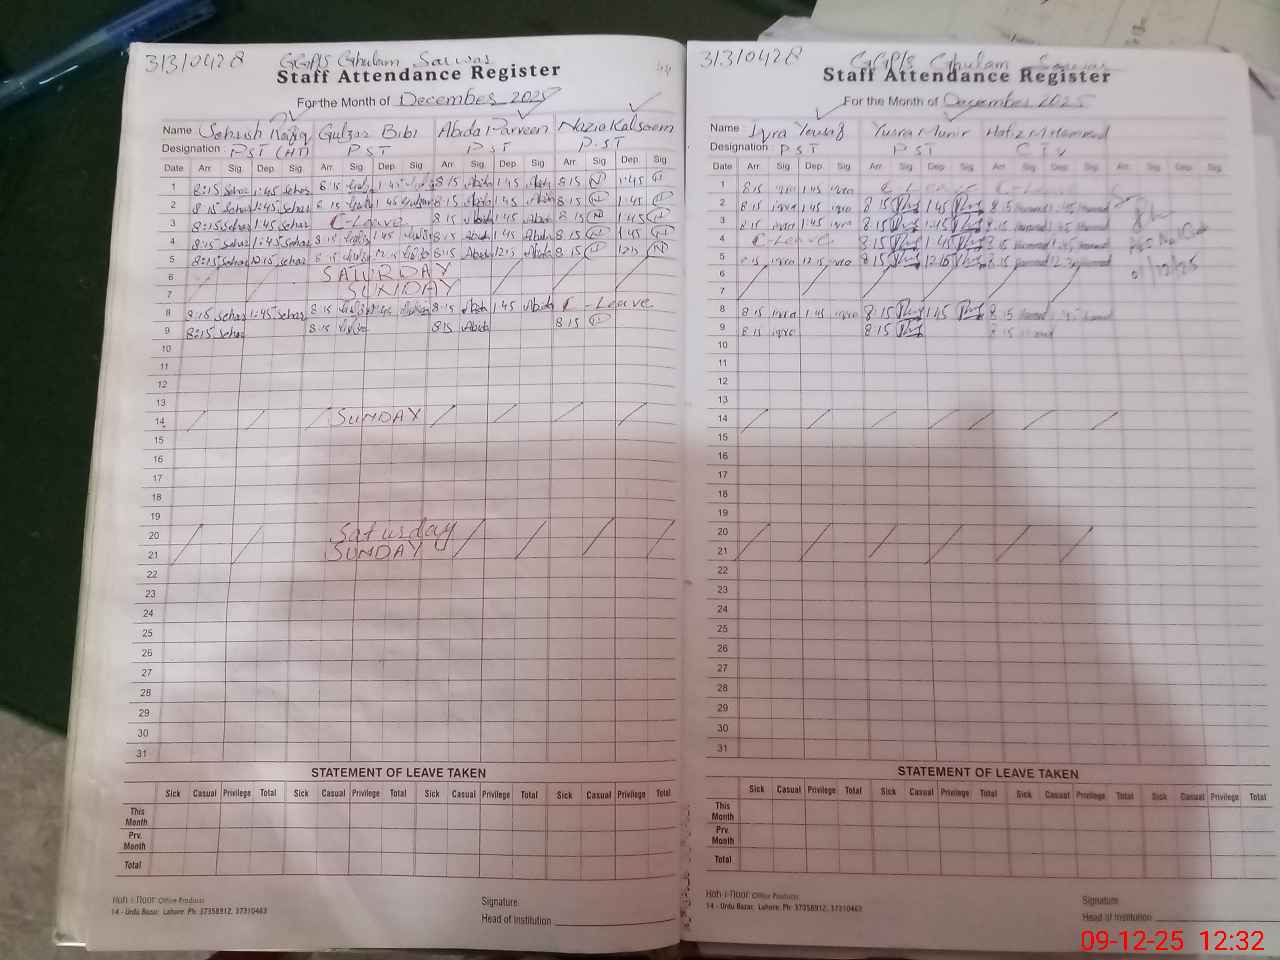 31310428 GGP/S Ghulam Sarwar 44
Staff Attendance Register
For the Month of December 2025
Name Sehrish Gulzar Bibi Abida Parveen Nazia Kalsoom
Designation PST (HT) PST PST P.ST
Date Arr Sig Dep Sig Arr Sig Dep Sig Arr Sig Dep Sig Arr Sig Dep Sig
1 8:15 Sehar 1:45 Sehar 8 15 1 45 8 15 Abida 1:45 Abida 8 15 N 1:45
2 8 15 Sehar 1:45 Sehar 8 15 1 45 8 15 Abida 1:45 Abida 8 15 N 1.45
3 8:15 Sehar 1:45 Sehar C-Leave 8 15 Abida 1:45 Abida 8 15 N 1:45
4 8:15 Sehar 1:45 Sehar 8 15 1:45 8 15 Abida 1:45 Abida 8 15 N 1.45
5 8:15 Sehar 12:15 Sehar 8 15 12 15 8:15 Abida 12:15 Abida 8 15 N 12:15 N
6 SATURDAY
7 SUNDAY
8 8:15 Sehar 1:45 Sehar 8 15 1:45 8:15 Abida 1:45 Abida C-Leave
9 8:15 Sehar 8:15 8:15 Abida 8 15
10
11
12
13
14 SUNDAY
15
16
17
18
19
20 Saturday
21 SUNDAY
22
23
24
25
26
27
28
29
30
31
STATEMENT OF LEAVE TAKEN
Sick Casual Privilege Total Sick Casual Privilege Total Sick Casual Privilege Total Sick Casual Privilege Total
This Month
Prv. Month
Total
Koh-i-Noor Office Products
14 - Urdu Bazar, Lahore. Ph: 37358912, 37310463
Signature
Head of Institution
31310428 GGP/S Ghulam Sarwar
Staff Attendance Register
For the Month of December 2025
Name Iqra Yousaf Yusra Munir Hafiz Muhammad
Designation PST PST
Date Arr Sig Dep Sig Arr Sig Dep Sig Arr Sig Dep Sig Arr Sig Dep Sig
1 8 15 iqra 1:45 iqra
2 8 15 iqra 1:45 iqra 8 15 1:45 8 15 1:45
3 8 15 iqra 1:45 iqra 8 15 1:45 8 15
4 C-Leave 8 15 1:45 8 15
5 8 15 iqra 12 15 iqra 8 15 12:15 8 15
6
7
8 8 15 iqra 1 45 iqra 8 15 1:45 8 15
9 8 15 iqra 8 15 8 15
10
11
12
13
14
15
16
17
18
19
20
21
22
23
24
25
26
27
28
29
30
31
STATEMENT OF LEAVE TAKEN
Sick Casual Privilege Total Sick Casual Privilege Total Sick Casual Privilege Total Sick Casual Privilege Total
This Month
Prv. Month
Total
Koh-i-Noor Office Products
14 - Urdu Bazar, Lahore. Ph: 37358912, 37310463
Signature
Head of Institution
09-12-25 12:32